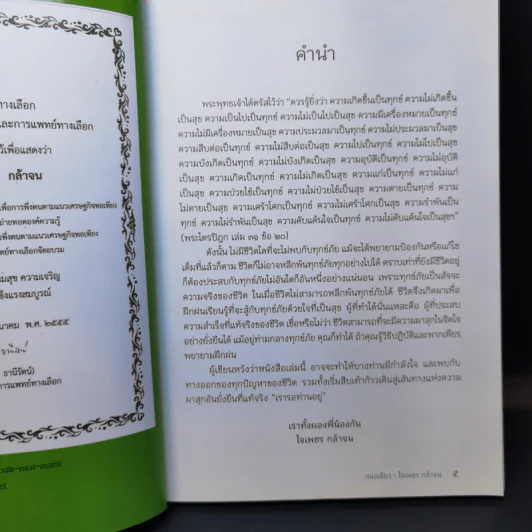 ทางเลือก
และการแพทย์ทางเลือก
ว้เพื่อแสดงว่า
กล้าจน
เพื่อการพึ่งตนตามแนวเศรษฐกิจพอเพียง
ถ่ายทอดองค์ความรู้
พึ่งตนตามแนวเศรษฐกิจพอเพียง
ทย์ทางเลือกจัดอบรม
มสุข ความเจริญ
ข็งแรงสมบูรณ์
นาคม พ.ศ. ๒๕๕๕
ธานีรัตน์)
การแพทย์ทางเลือก
คำนำ
พระพุทธเจ้าได้ตรัสไว้ว่า “ควรรู้ยิ่งว่า ความเกิดขึ้นเป็นทุกข์ ความไม่เกิดขึ้น
เป็นสุข ความเป็นไปเป็นทุกข์ ความไม่เป็นไปเป็นสุข ความมีเครื่องหมายเป็นทุกข์
ความไม่มีเครื่องหมายเป็นสุข ความประมวลมาเป็นทุกข์ ความไม่ประมวลมาเป็นสุข
ความสืบต่อเป็นทุกข์ ความไม่สืบต่อเป็นสุข ความไปเป็นทุกข์ ความไม่ไปเป็นสุข
ความบังเกิดเป็นทุกข์ ความไม่บังเกิดเป็นสุข ความอุบัติเป็นทุกข์ ความไม่อุบัติ
เป็นสุข ความเกิดเป็นทุกข์ ความไม่เกิดเป็นสุข ความแก่เป็นทุกข์ ความไม่แก่
เป็นสุข ความป่วยไข้เป็นทุกข์ ความไม่ป่วยไข้เป็นสุข ความตายเป็นทุกข์ ความ
ไม่ตายเป็นสุข ความเศร้าโศกเป็นทุกข์ ความไม่เศร้าโศกเป็นสุข ความรำพันเป็น
ทุกข์ ความไม่รำพันเป็นสุข ความคับแค้นใจเป็นทุกข์ ความไม่คับแค้นใจเป็นสุข”
(พระไตรปิฎก เล่ม ๓๑ ข้อ ๒๐)
ดังนั้น ไม่มีชีวิตใดที่จะไม่พบกับทุกข์ภัย แม้จะได้พยายามป้องกันหรือแก้ไข
เต็มที่แล้วก็ตาม ชีวิตก็ไม่อาจหลีกพ้นทุกข์ภัยทุกอย่างไปได้ ตราบเท่าที่ยังมีชีวิตอยู่
ก็ต้องประสบกับทุกข์ภัยไม่อันใดก็อันหนึ่งอย่างแน่นอน เพราะทุกข์ภัยเป็นสัจจะ
ความจริงของชีวิต ในเมื่อชีวิตไม่สามารถหลีกพ้นทุกข์ภัยได้ ชีวิตจึงเกิดมาเพื่อ
ฝึกฝนเรียนรู้ที่จะสู้กับทุกข์ภัยด้วยใจที่เป็นสุข ผู้ที่ทำได้นั่นแหละคือ ผู้ที่ประสบ
ความสำเร็จที่แท้จริงของชีวิต เชื่อหรือไม่ว่า ชีวิตสามารถที่จะมีความผาสุกในจิตใจ
อย่างยั่งยืนได้ แม้อยู่ท่ามกลางทุกข์ภัย คุณก็ทำได้ ถ้าคุณรู้วิธีปฏิบัติและพากเพียร
พยายามฝึกฝน
ผู้เขียนหวังว่าหนังสือเล่มนี้ อาจจะทำให้บางท่านมีกำลังใจ และพบกับ
ทางออกของทุกปัญหาของชีวิต รวมทั้งเริ่มสืบเท้าก้าวเดินสู่เส้นทางแห่งความ
ผาสุกอันยั่งยืนที่แท้จริง “เรารอท่านอยู่”
เราทั้งผองพี่น้องกัน
ใจเพชร กล้าจน
หมอเขียว : ใจเพชร กล้าจน ๕